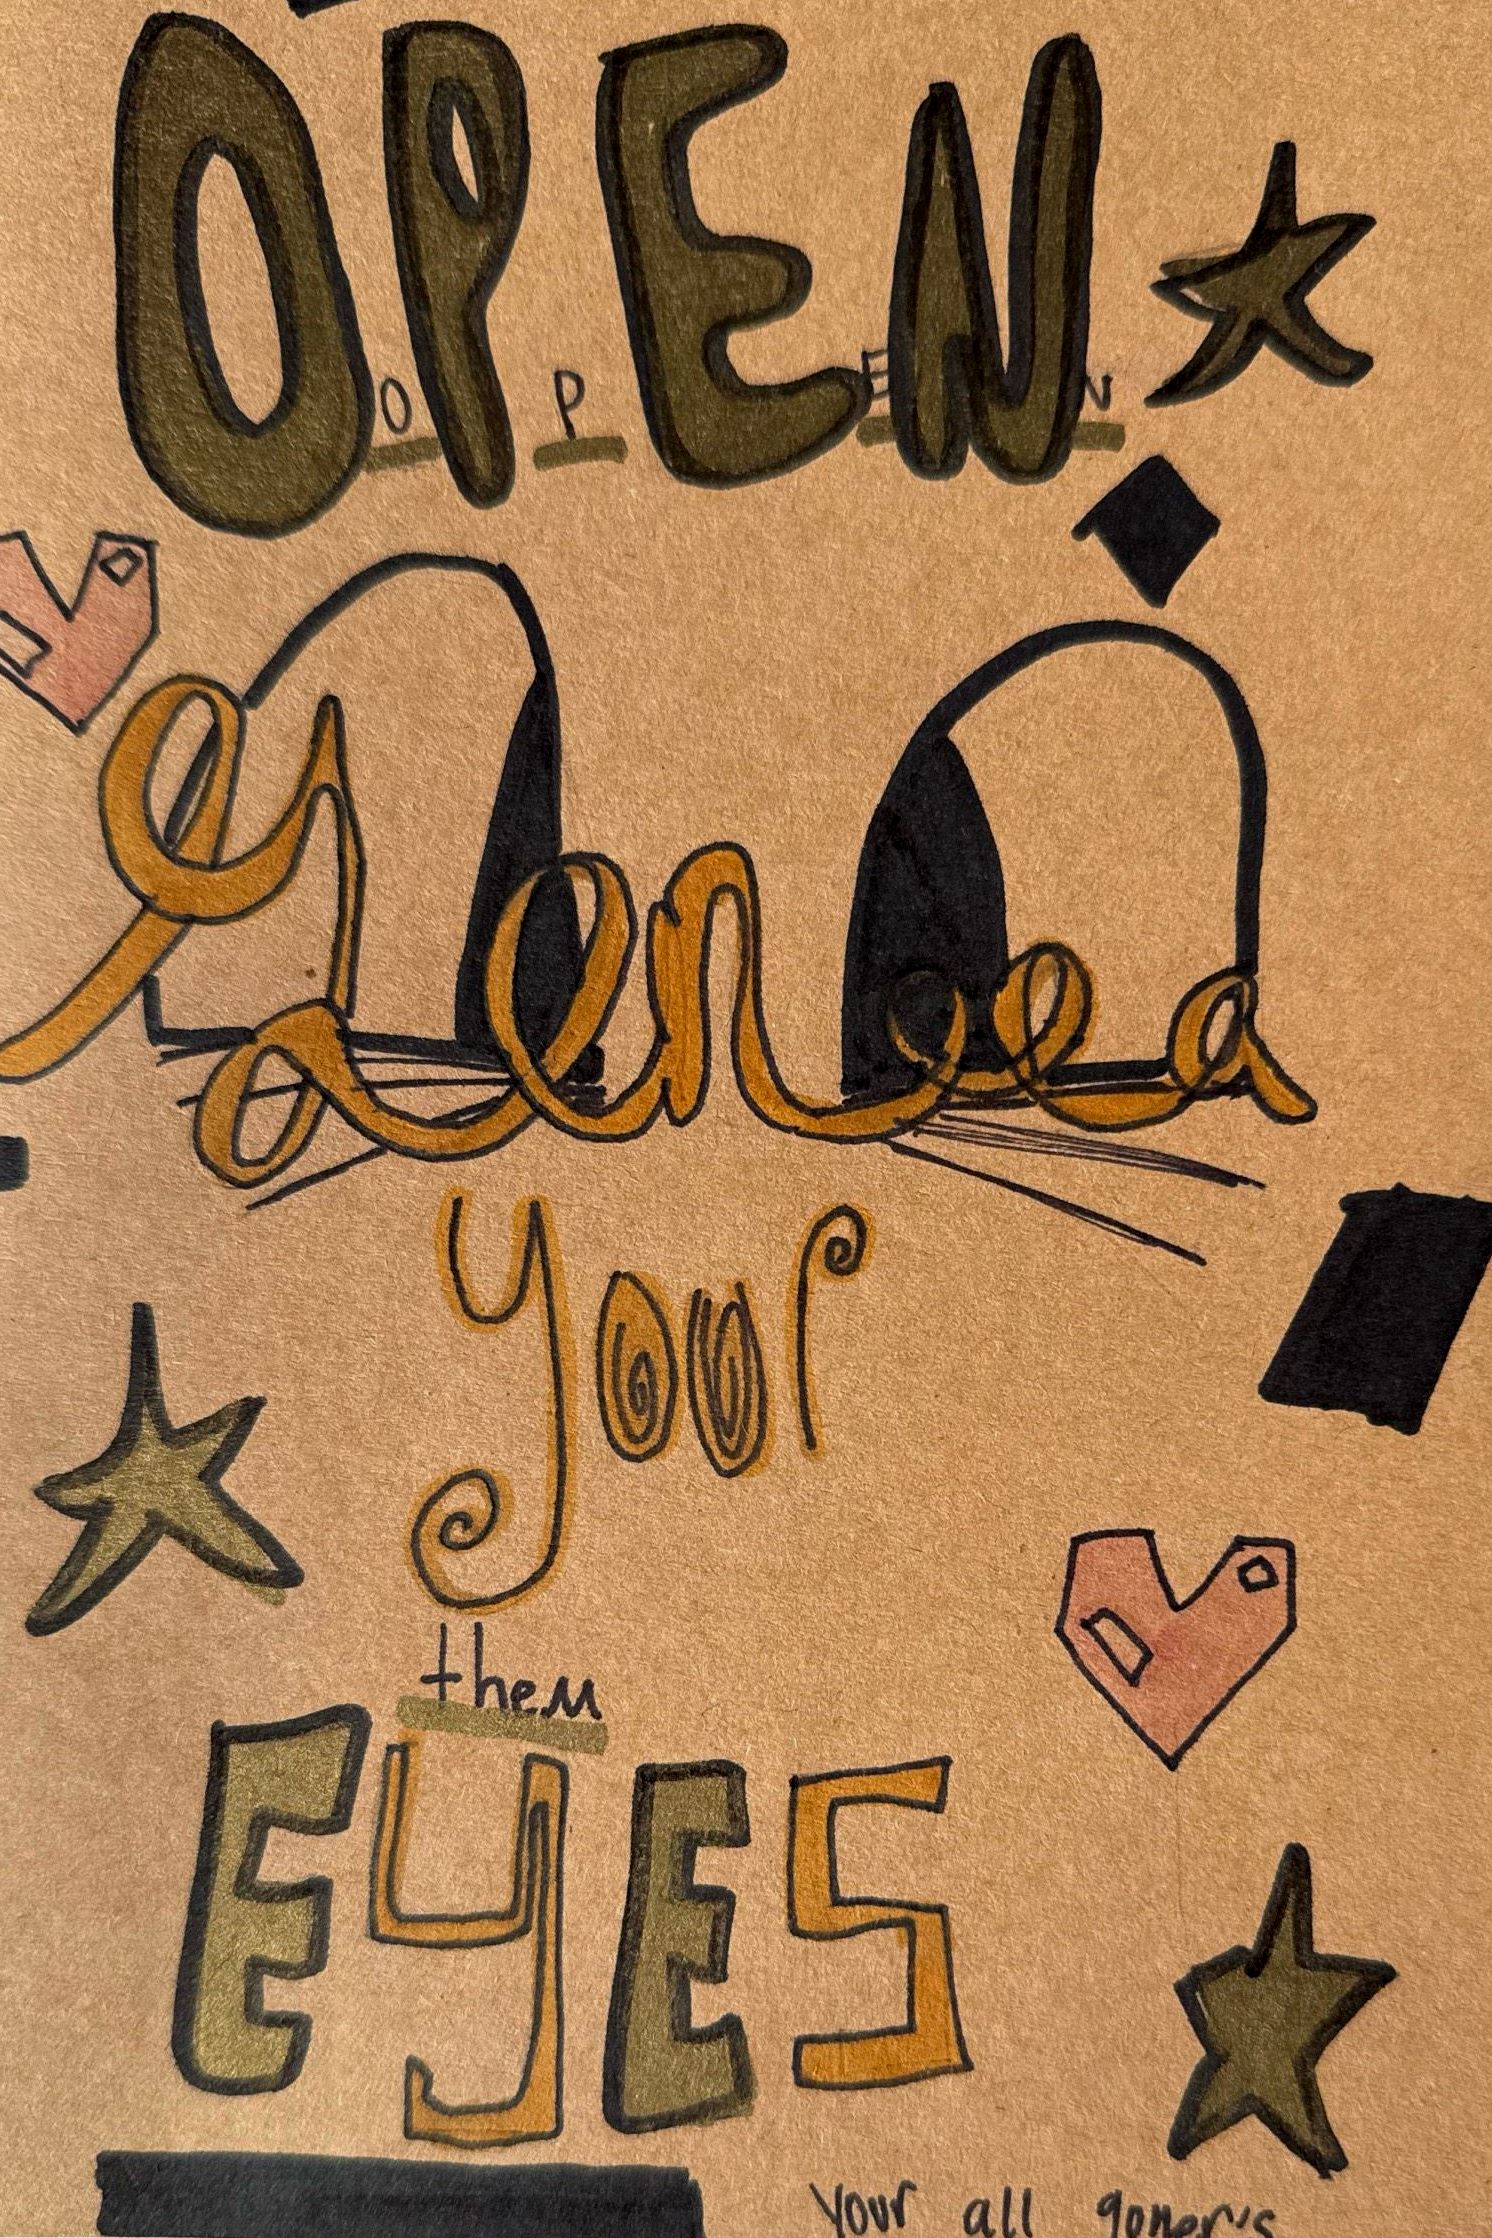 OPEN
O P E N
Genera
your
them
EYES
your all goner's